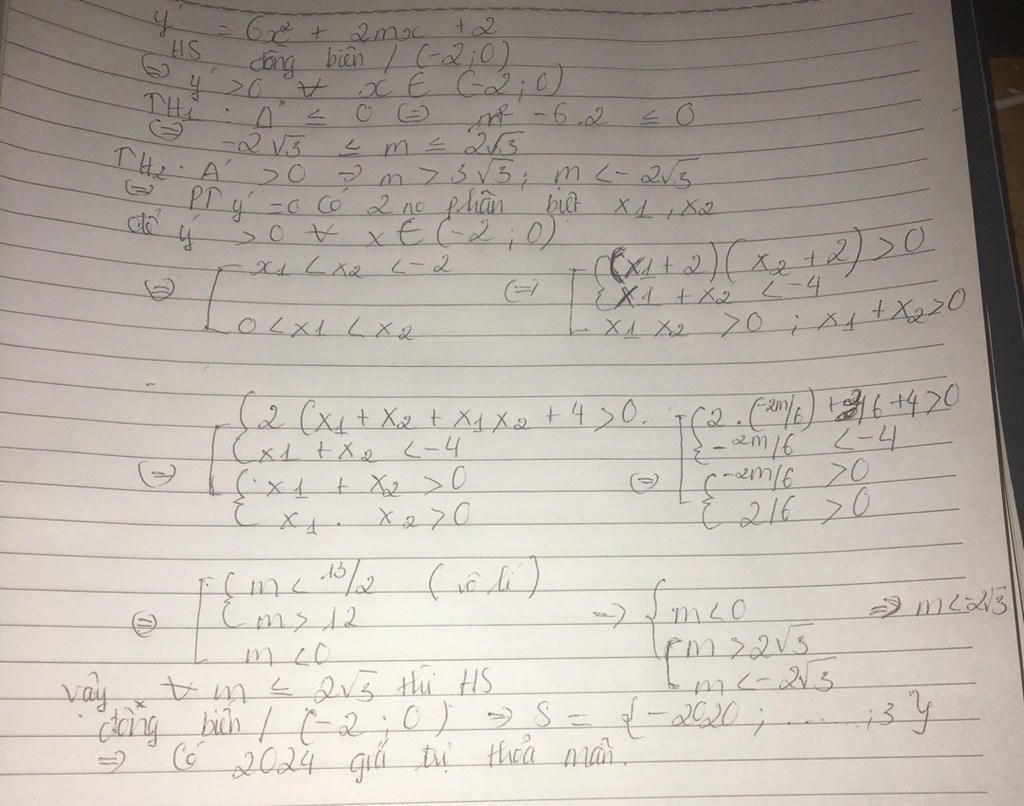 y' = 6x² + 2mx + 2
HS đồng biến / (-2;0)
(=) y' > 0 ∀ x ∈ (-2;0)
TH1: Δ' ≤ 0 (=) m² - 6.2 ≤ 0
(=) -2√3 ≤ m ≤ 2√3
TH2: Δ' > 0 => m > 3√3; m < -2√3
(=) PT y' = 0 có 2 no phân biệt x1, x2
để y' > 0 ∀ x ∈ (-2;0)
(=) [ x1 < x2 < -2 (=) [ { (x1 + 2)(x2 + 2) > 0
{ x1 + x2 < -4
0 < x1 < x2 x1 x2 > 0 ; x1 + x2 > 0
{ 2 (x1 + x2 + x1 x2 + 4 > 0. { 2.(-2m/6) + 2/6 + 4 > 0
{ x1 + x2 < -4 { -2m/6 < -4
(=) [ { x1 + x2 > 0 (=) [ { -2m/6 > 0
{ x1 . x2 > 0 { 2/6 > 0
[ { m < 13/2 (vô lí)
(=) { m > 12 => { m < 0 => m < -2√3
m < 0 [ m > 2√3
m < -2√3
Vậy ∀ m ≤ 2√3 thì HS
đồng biến / (-2;0) => S = {-2020; ......; 3}
=> Có 2024 giá trị thỏa mãn.